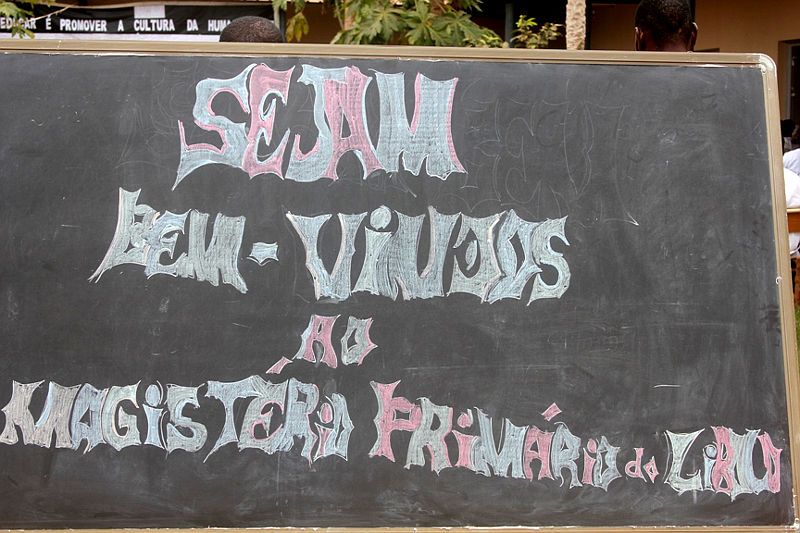 EDUCAR É PROMOVER A CULTURA DA HUMA
SEJAM
BEM-VINDOS
AO
MAGISTÉRIO PRIMÁRIO do LiBOLO